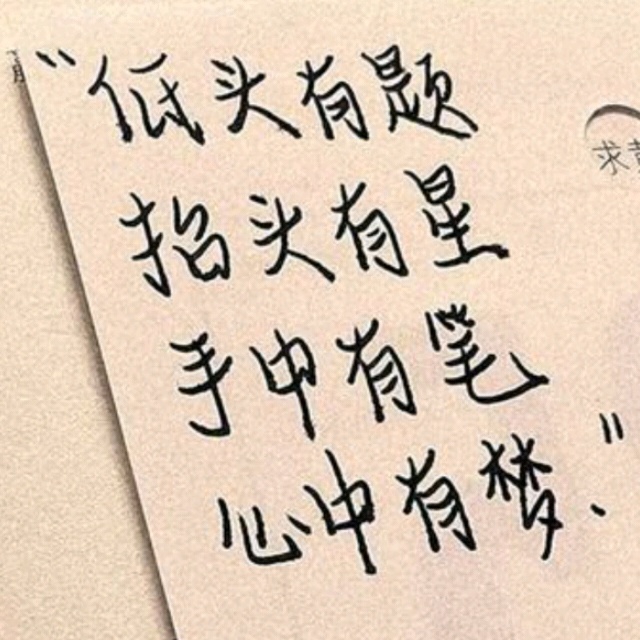 “低头有题
抬头有星
手中有笔
心中有梦、”
求